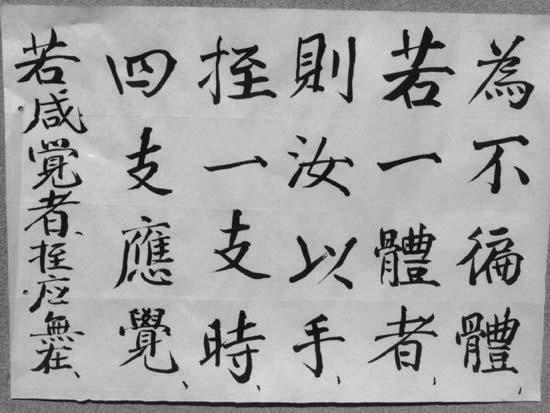 為不徧體、
若一體者、
則汝以手、
挃一支時、
四支應覺、
若咸覺者、挃应無在、